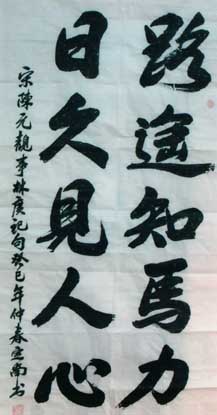 路途知馬力
日久見人心
宋陳元靚事林廣記句癸巳年仲春雲南书